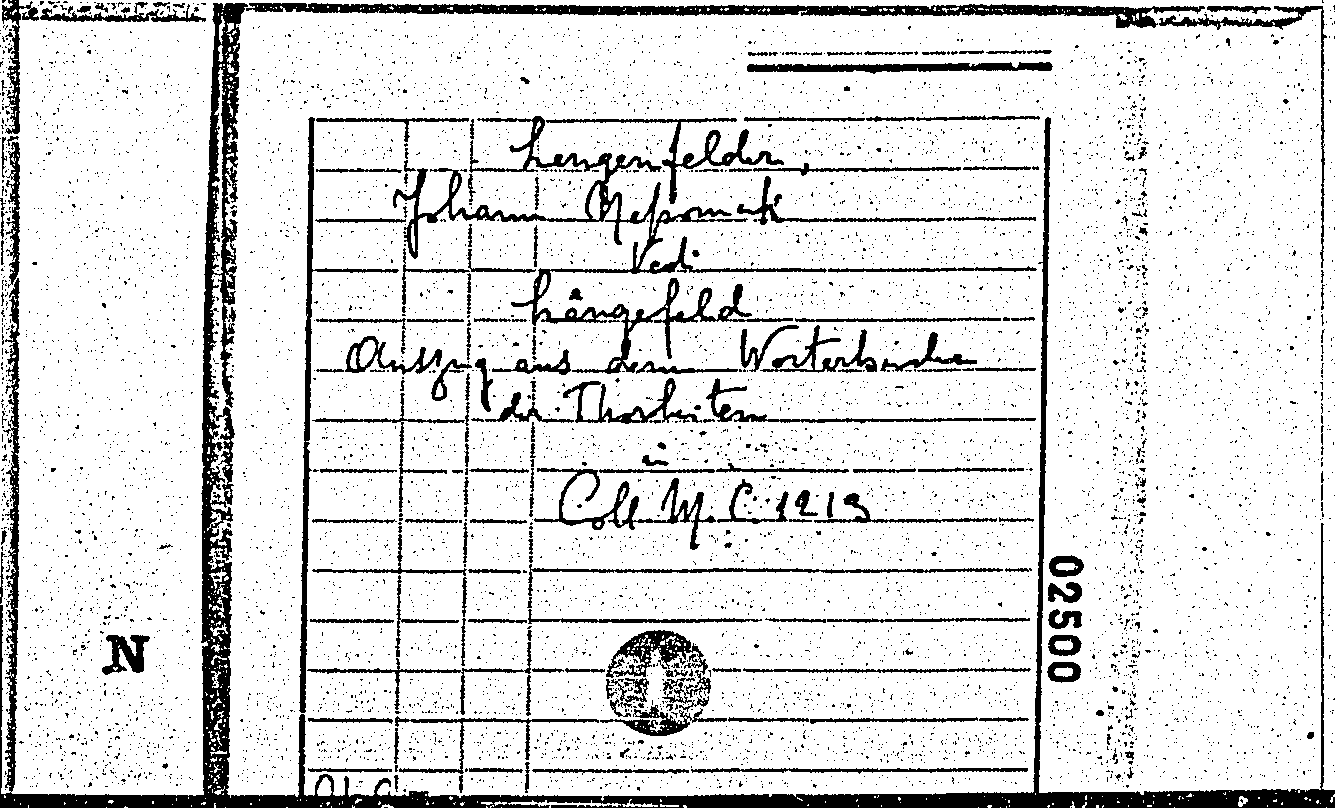 Lengenfelder,
Johann Nepomuk
Vedi
Längefeld
Auszug aus dem Worterbuche
der Thorheiten
in
Coll M. C. 1213
02500
N